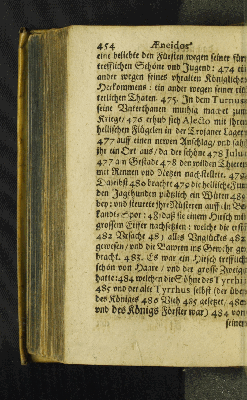 454 Æneidos
eine beliebte den Fürsten wegen seiner für-
trefflichen Schöne und Jugend: 474 ein
ander wegen seines uhralten Königlichen
Herkommens: ein ander wegen seiner
terlichen Thaten. 475. In dem Turnus
seine Vaterthanen muthig machet zum
Kriege/ 476 erhub sich Alecto mit ihren
hellischen Flügeln in der Trojaner Lager
477 auff einen neuen Anschlag/ und sahe
ihr ein Ort aus/ da der schöne 478 Julus
477 am Gestade 478 den wilden Thieren
mit Rennen und Netzen nachstellete. 479.
Daselbst 480 brachte 479 die hellische
den Jagthunden plötzlich ein Wüten 480
bey: und steurete ihre Nüstern auff
kandte Spor: 481 daß sie einem Hirsch mit
grossem Eifer nachsetzten: welche die erste
482 Ursache 481 alles Unglückes 482
gewesen/ und die Bawren ins Gewehr ge-
bracht. 483. Es war ein Hirsch trefflich
schön von Haare/ und der grosse Zweige
hatte: 484 welchen die Söhne des Tyrrhus
485 und der alte Tyrrhus selbst (der über
des Königes 486 Vieh 485 gesetzet/ 486
und des Königs Förster war) 484 von
seiner